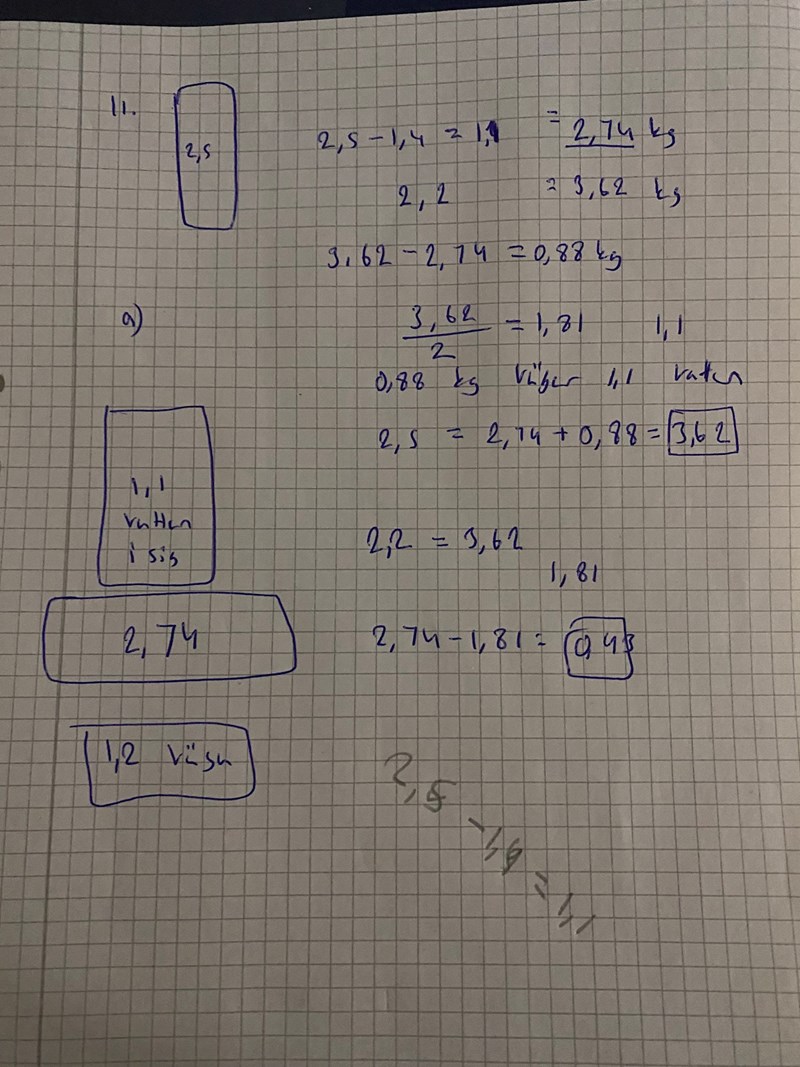 11.
2,5
2,5 - 1,4 = 1,1 = 2,74 kg
2,2 = 3,62 kg
3,62 - 2,74 = 0,88 kg
a)
3,62
2 = 1,81 1,1
0,88 kg väger 1,1 vatten
2,5 = 2,74 + 0,88 = 3,62
1,1
vatten
i sig
2,2 = 3,62
1,81
2,74
2,74 - 1,81 =
1,2 väger
2,5